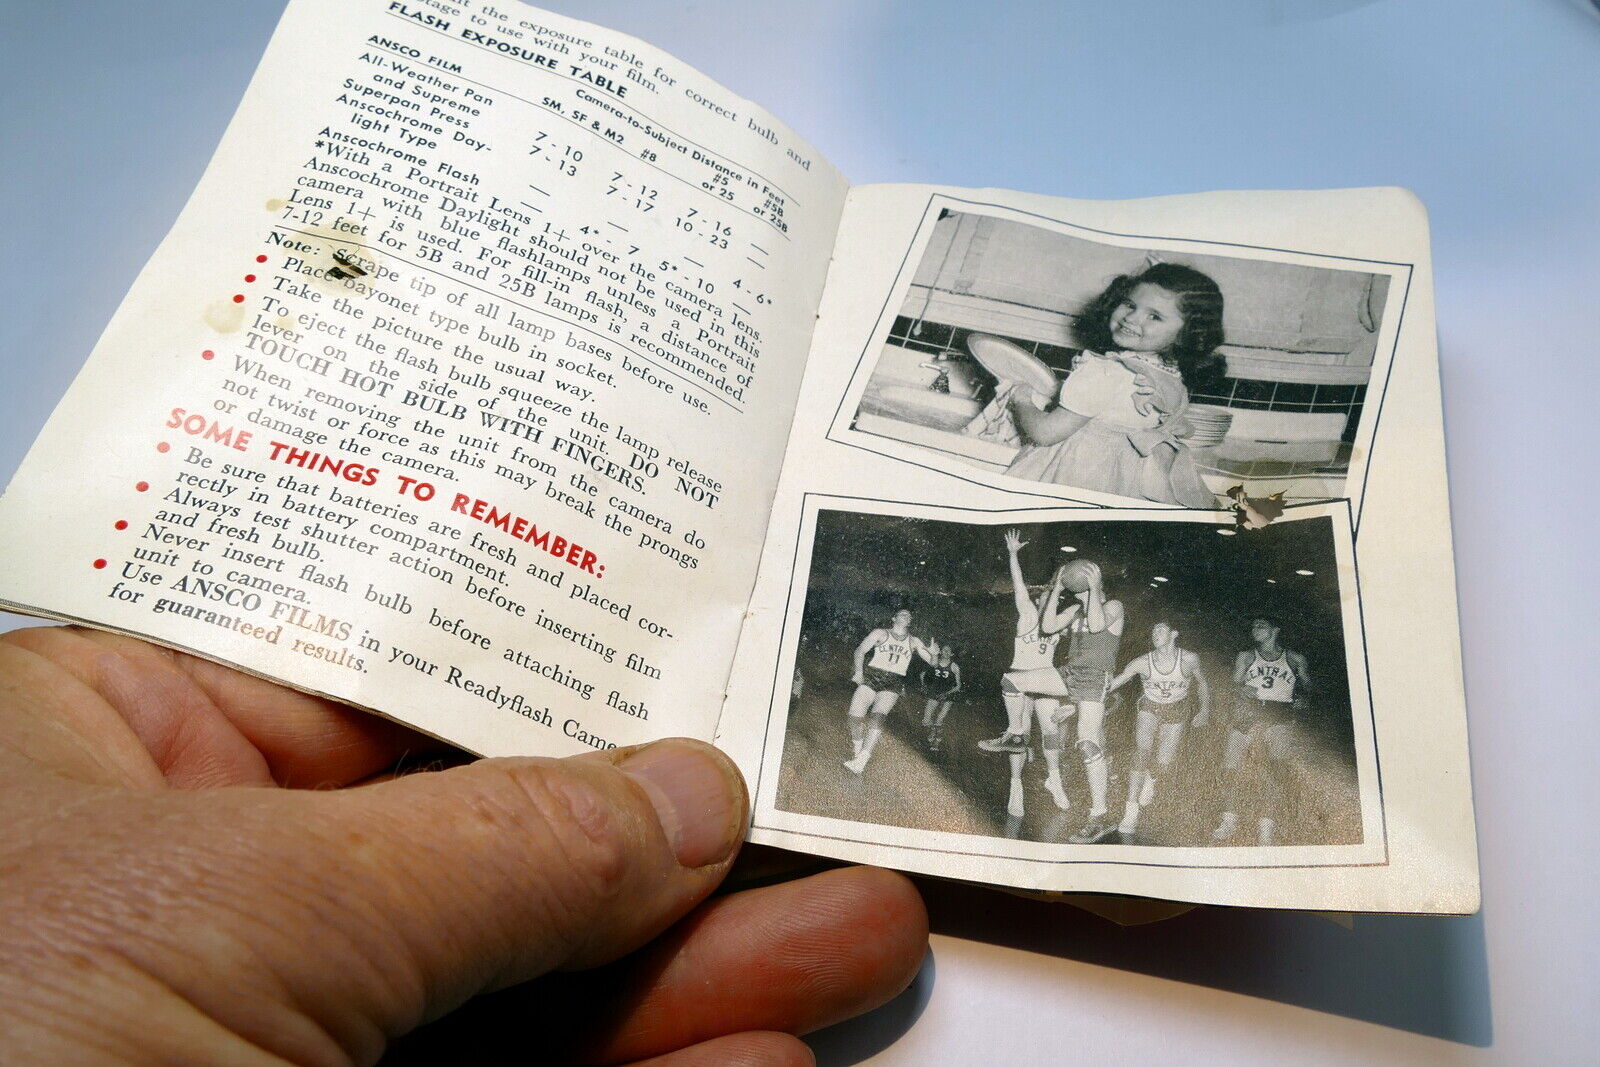 the exposure table for correct bulb and
stage to use with your film.
FLASH EXPOSURE TABLE
Camera-to-Subject Distance in Feet
ANSCO FILM SM, SF & M2 #8 #5 or 25 #5B or 25B
All-Weather Pan
and Supreme 7 - 10 7 - 12 7 - 16 —
Superpan Press 7 - 13 7 - 17 10 - 23 —
Anscochrome Day-
light Type — — — 4 - 6*
Anscochrome Flash — 4* - 7 5* - 10 —
*With a Portrait Lens 1+ over the camera lens.
Anscochrome Daylight should not be used in this
camera with blue flashlamps unless a Portrait
Lens 1+ is used. For fill-in flash, a distance of
7-12 feet for 5B and 25B lamps is recommended.
Note: Scrape tip of all lamp bases before use.
• Place bayonet type bulb in socket.
• Take the picture the usual way.
• To eject the flash bulb squeeze the lamp release
lever on the side of the unit. DO NOT
TOUCH HOT BULB WITH FINGERS.
• When removing the unit from the camera do
not twist or force as this may break the prongs
or damage the camera.
SOME THINGS TO REMEMBER:
• Be sure that batteries are fresh and placed cor-
rectly in battery compartment.
• Always test shutter action before inserting film
and fresh bulb.
• Never insert flash bulb before attaching flash
unit to camera.
• Use ANSCO FILMS in your Readyflash Came
for guaranteed results.
CENTRAL
11
23
CENTRAL
9
CENTRAL
5
CENTRAL
3